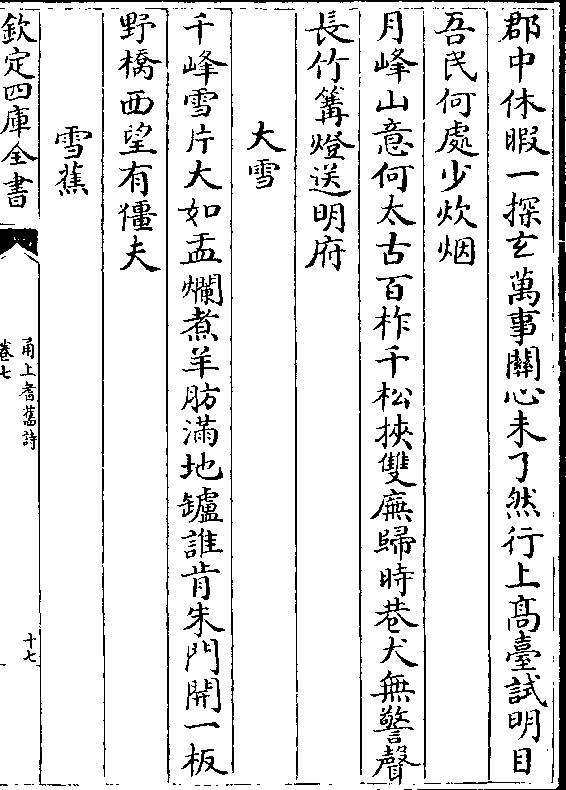 郡中休暇一探玄萬事關心未了然行上髙臺試明目
吾民何處少炊烟
月峰山意何太古百柞千松挾雙廡歸時巷犬無警聲
長竹篝燈送明府
大雪
千峰雪片大如盂爛煮羊肪滿地罏誰肯朱門開一板
野橋西望有僵夫
雪蕉
欽定四庫全書
甬上耆舊詩
卷七
十七